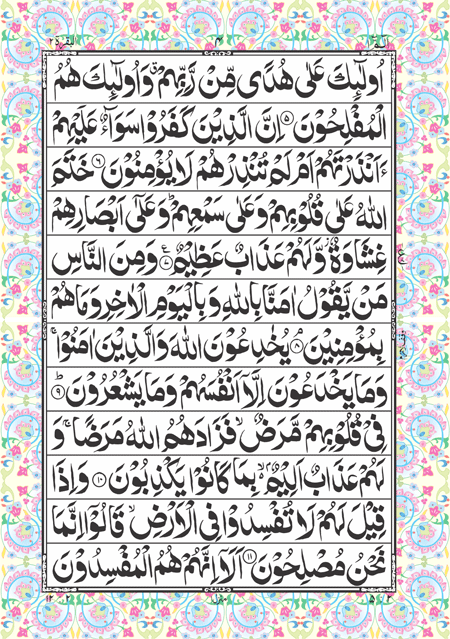 البقرة ٢ ٤ الٓمّٓ ١
اُولٰٓئِكَ عَلٰى هُدًى مِّنْ رَّبِّهِمْ ۙ وَاُولٰٓئِكَ هُمُ
الْمُفْلِحُوْنَ ۝۵ اِنَّ الَّذِيْنَ كَفَرُوْا سَوَآءٌ عَلَيْهِمْ
ءَاَنْذَرْتَهُمْ اَمْ لَمْ تُنْذِرْهُمْ لَا يُؤْمِنُوْنَ ۝۶ خَتَمَ
اللّٰهُ عَلٰى قُلُوْبِهِمْ وَعَلٰى سَمْعِهِمْ ؕ وَعَلٰٓى اَبْصَارِهِمْ
غِشَاوَةٌ ؗ وَّلَهُمْ عَذَابٌ عَظِيْمٌ ۝۷ وَمِنَ النَّاسِ
مَنْ يَّقُوْلُ اٰمَنَّا بِاللّٰهِ وَبِالْيَوْمِ الْاٰخِرِ وَمَا هُمْ
بِمُؤْمِنِيْنَ ۝۸ يُخٰدِعُوْنَ اللّٰهَ وَالَّذِيْنَ اٰمَنُوْا ۚ
وَمَا يَخْدَعُوْنَ اِلَّاۤ اَنْفُسَهُمْ وَمَا يَشْعُرُوْنَ ۝۹ؕ
فِىْ قُلُوْبِهِمْ مَّرَضٌ ۙ فَزَادَهُمُ اللّٰهُ مَرَضًا ۚ وَ
لَهُمْ عَذَابٌ اَلِيْمٌ ۙ۬ بِمَا كَانُوْا يَكْذِبُوْنَ ۝۱۰ وَاِذَا
قِيْلَ لَهُمْ لَا تُفْسِدُوْا فِى الْاَرْضِ ۙ قَالُوْٓا اِنَّمَا
نَحْنُ مُصْلِحُوْنَ ۝۱۱ اَلَاۤ اِنَّهُمْ هُمُ الْمُفْسِدُوْنَ